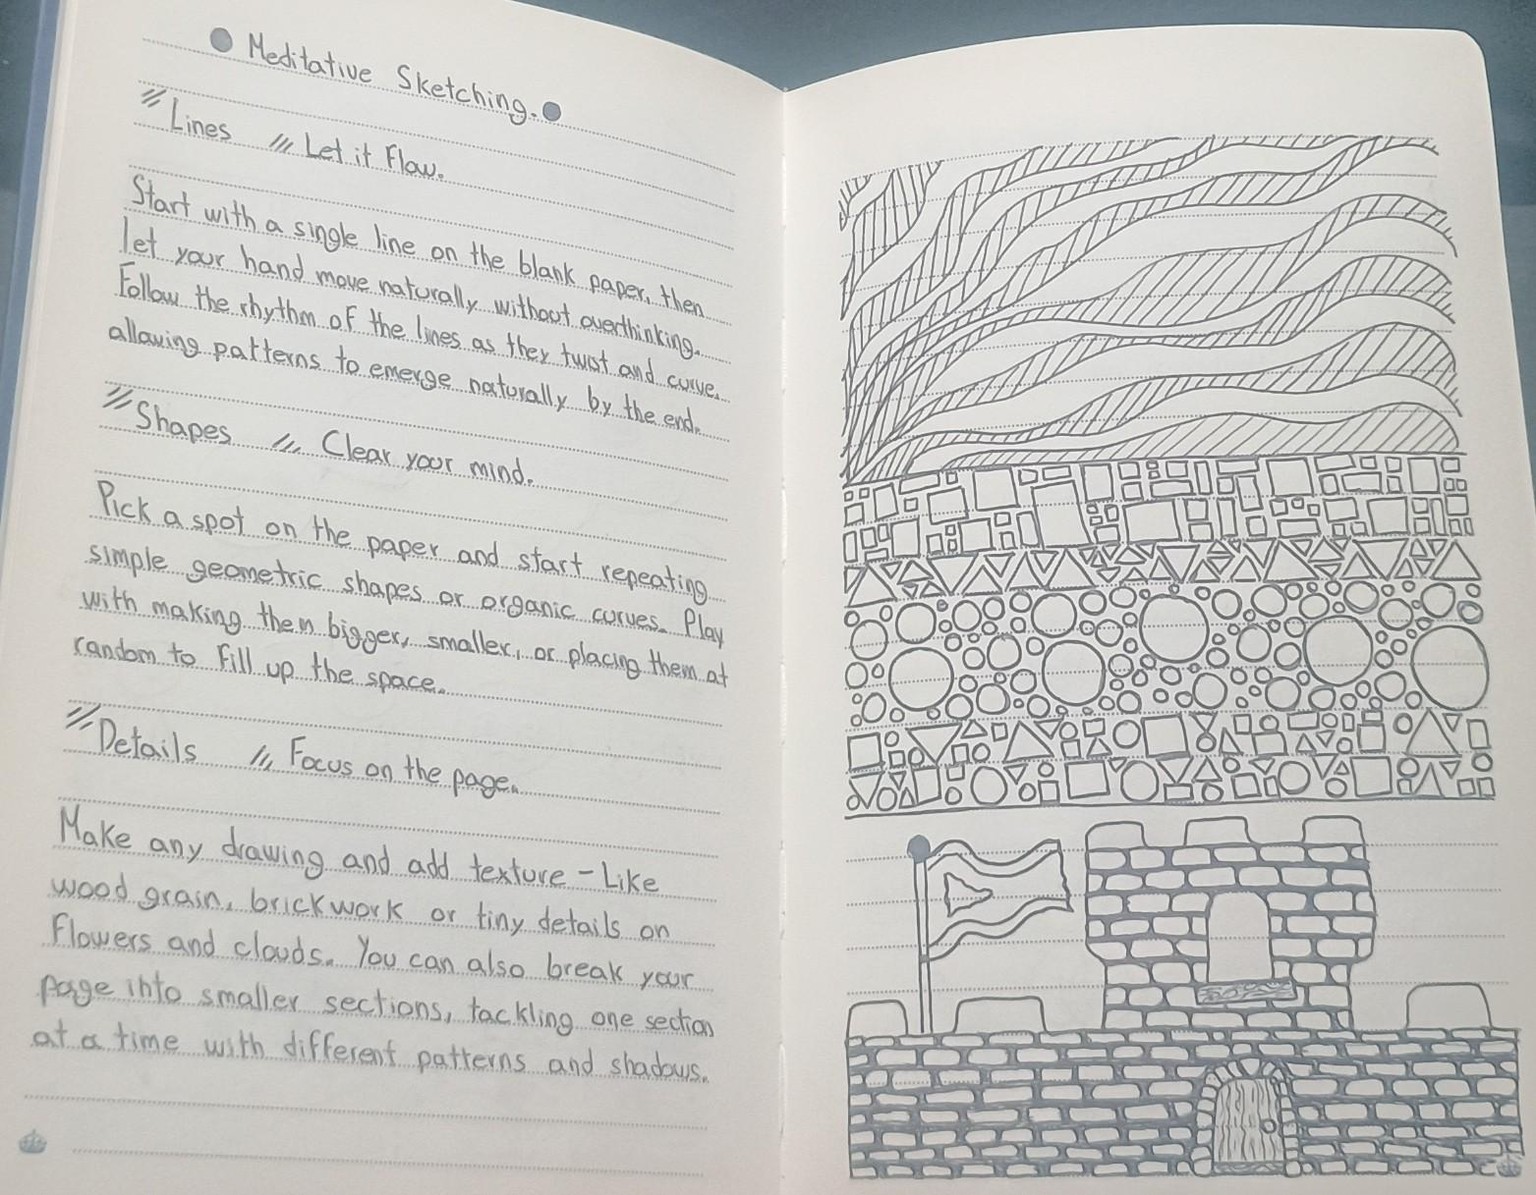 Meditative Sketching.
Lines /// Let it Flow.
Start with a single line on the blank paper, then
let your hand move naturally without overthinking.
Follow the rhythm of the lines as they twist and curve.
allowing patterns to emerge naturally by the end.
Shapes /// Clear your mind.
Pick a spot on the paper and start repeating
simple geometric shapes or organic curves. Play
with making them bigger, smaller, or placing them at
random to fill up the space.
Details /// Focus on the page.
Make any drawing and add texture - Like
wood grain, brickwork or tiny details on
flowers and clouds. You can also break your
page into smaller sections, tackling one section
at a time with different patterns and shadows.